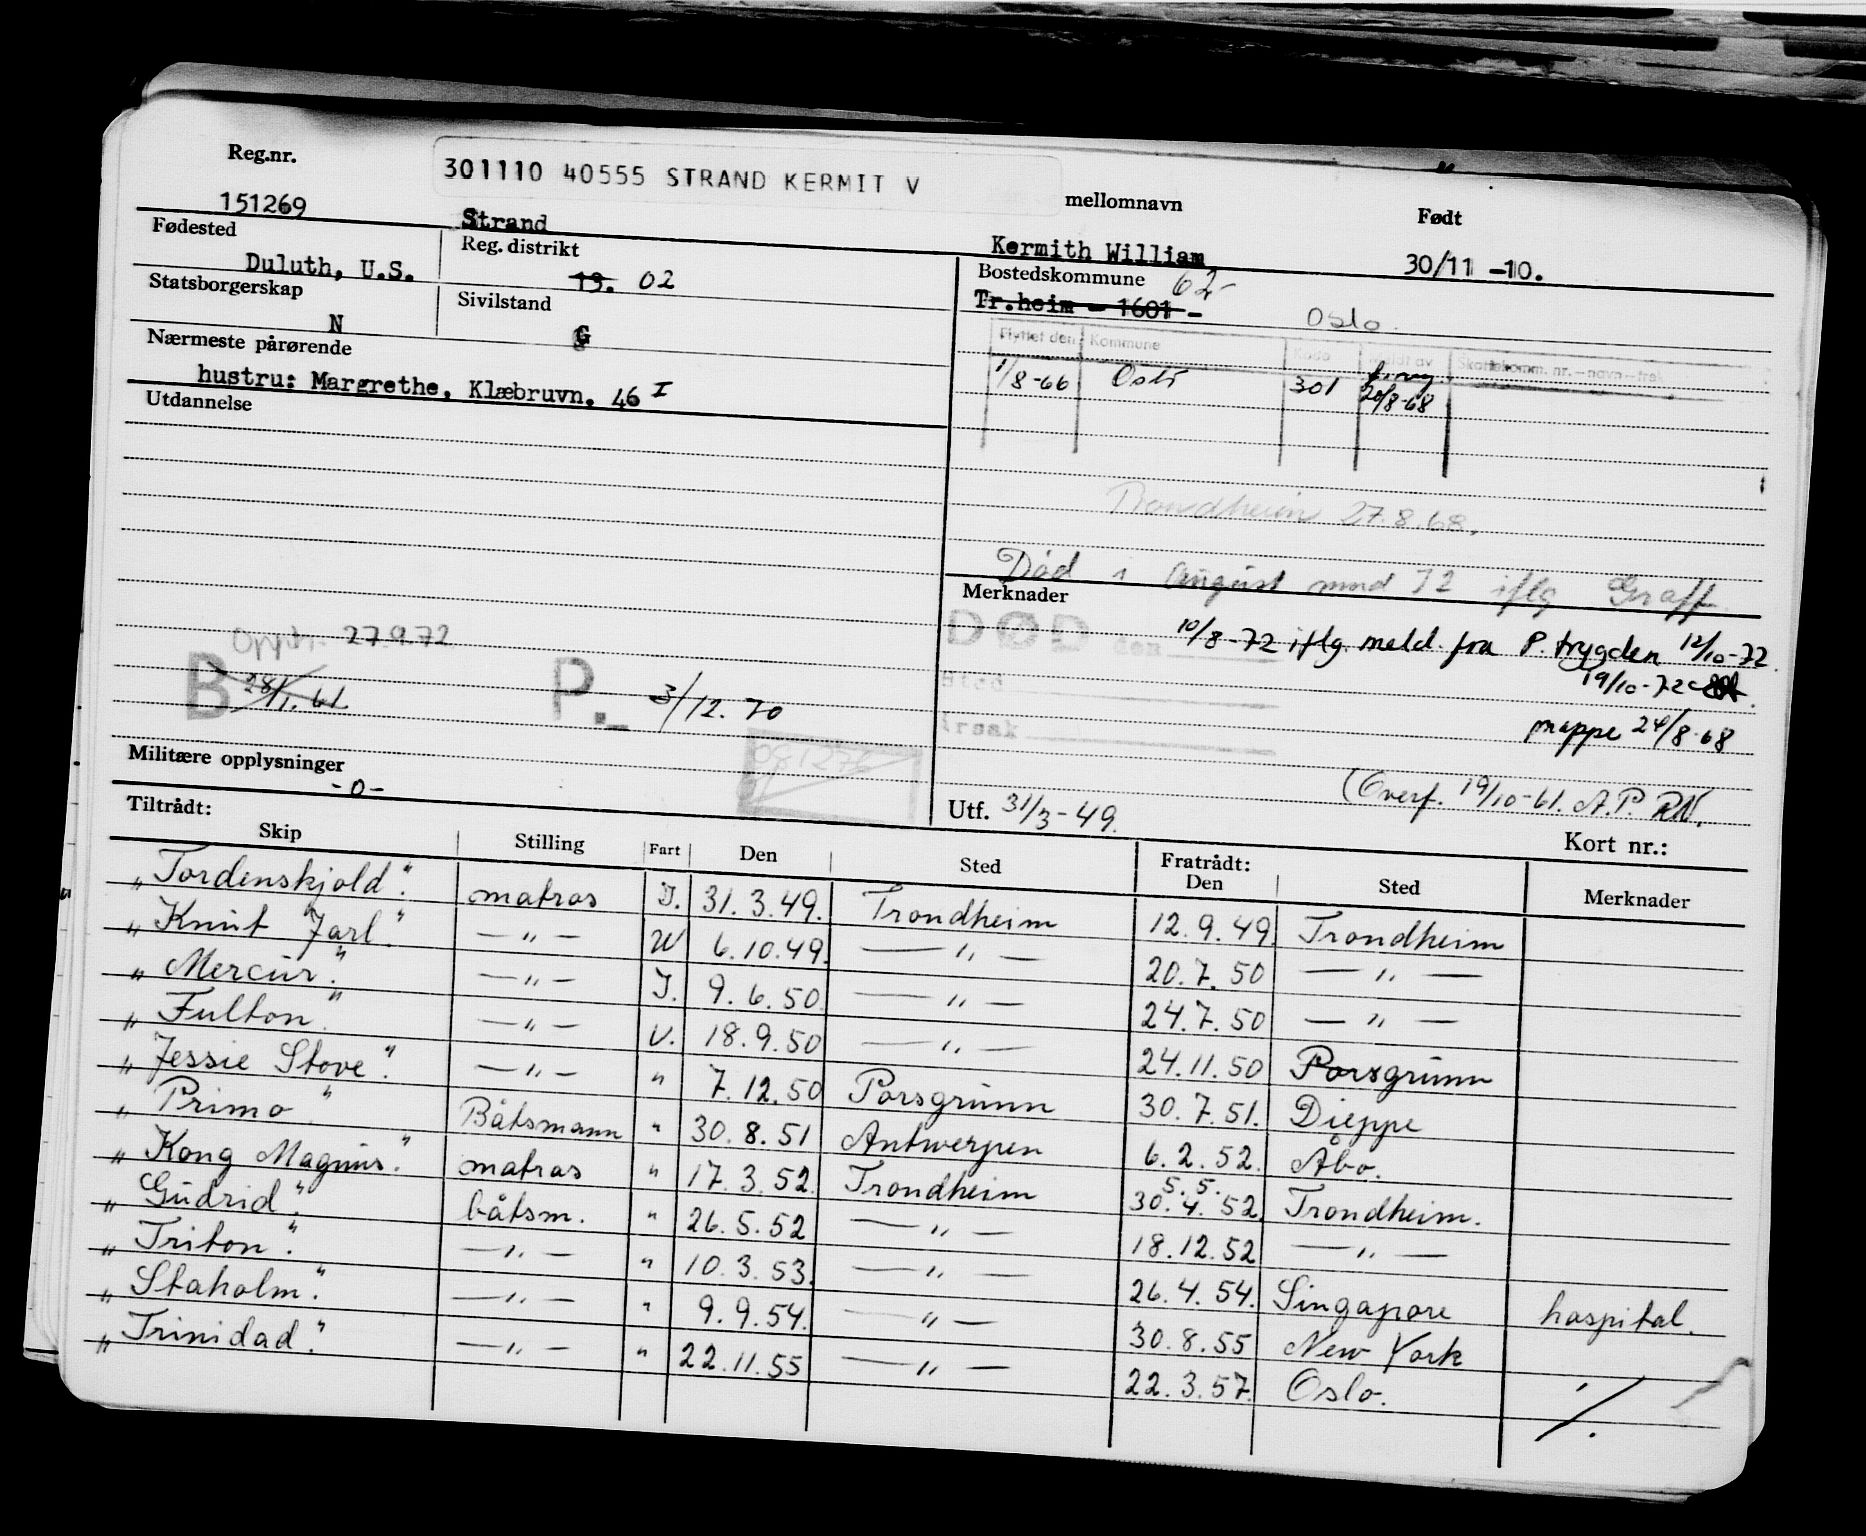 Reg.nr.
301110 40555 STRAND KERMIT V
mellomnavn
Født
151269
Strand
Kermith William
30/11 -10.
Fødested
Duluth, U.S.
Reg. distrikt
19. 02
Bostedskommune 62-
Tr.heim - 1601 -
Oslo.
Statsborgerskap
N
Sivilstand
G
Flyttet den Kommune Kode Meldt av Skattekomm. nr.-navn-
1/8-66 Oslo 301 20/8-68
Nærmeste pårørende
hustru: Margrethe, Klæbruvn. 46 I
Utdannelse
Trondheim 27.8.68.
Død i august mnd 72 iflg Graff.
Merknader
DØD den
10/8-72 iflg. meld. fra P. trygden 12/10-72.
19/10-72
Sted
Årsak
mappe 24/8-68
Opph. 27.9.72
B 28/1.61
P.- 3/12.70
Militære opplysninger
-0-
(Overf. 19/10-61. A.P. RN.
Utf. 31/3-49.
Kort nr.:
Tiltrådt:
Skip Stilling Fart Den Sted Fratrådt: Den Sted Merknader
„Tordenskjold". matros I. 31.3.49. Trondheim 12.9.49. Trondheim
„Knut Jarl". —„— U 6.10.49. —„— 20.7.50 —„—
„Mercur". —„— I. 9.6.50. —„— 24.7.50 —„—
„Fulton". —„— U. 18.9.50 —„— 24.11.50 Porsgrunn
„Jessie Stove". —„— " 7.12.50 Porsgrunn 30.7.51. Dieppe
„Primo" Båtsmann " 30.8.51 Antwerpen 6.2.52. Åbo.
„Kong Magnus". matros " 17.3.52. Trondheim 5. 5. 30.4.52. Trondheim.
„Gudrid". båtsm. " 26.5.52 —„— 18.12.52 —„—
„Triton". —„— " 10.3.53. —„— 26.4.54. Singapore hospital.
„Staholm". —„— " 9.9.54. —„— 30.8.55 New York
„Trinidad". —„— " 22.11.55 —„— 22.3.57. Oslo. ./.